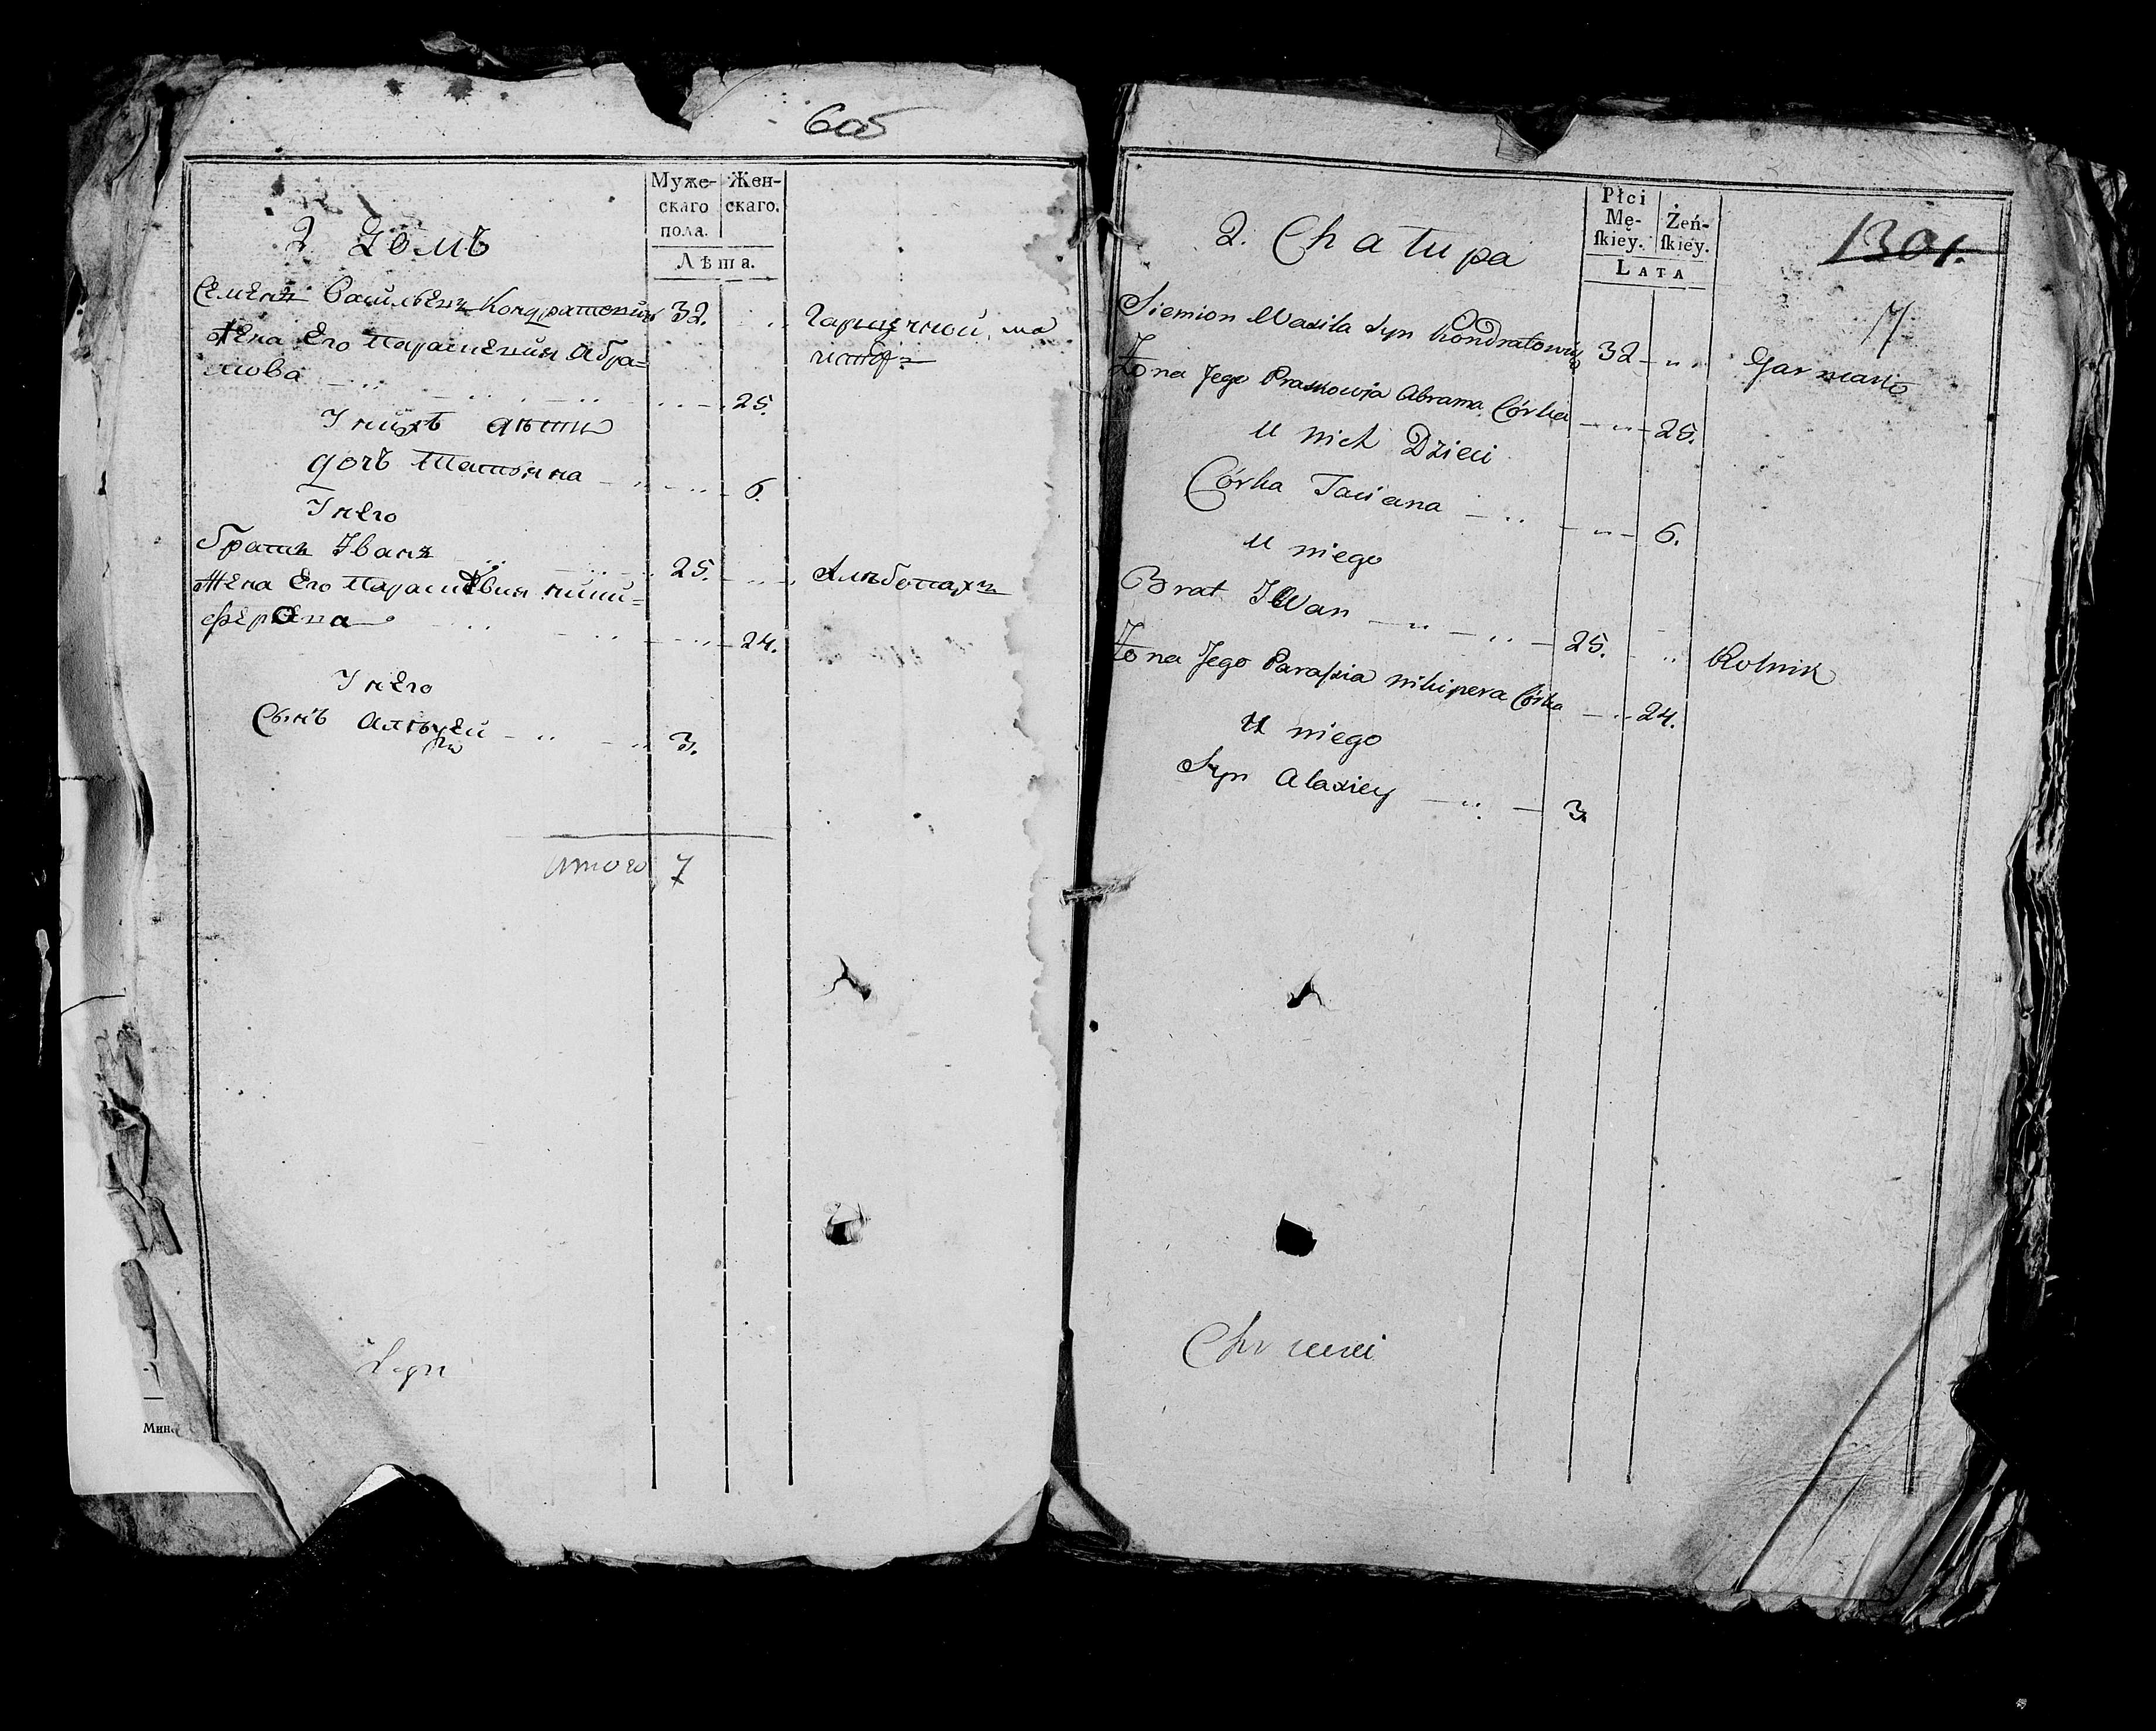 605
Муже-
скаго
пола.
Жен-
скаго.
Лѣта.
2 Домъ
Семенъ Васильевъ Кондратовичъ 32.
Гаршечной ма
стер
Жена Его Парасковия Абра=
мова 25.
У нихъ дѣти
дочь Татьяна 6.
У него
братъ Иванъ 25. Хлѣбопахъ
Жена Его Парасковия ники=
ферова 24.
У него
Сынъ Алексей 3.
итого 7
Мин
1301.
Płci
Mę-
ſkiey.
Żeń-
ſkiey.
Lata
2. Chałupa
7
Siemion Wasila Syn Kondratowicz 32 Garncarz
Żona Jego Praskowja Abrama Córka 25.
U nich Dzieci
Córka Taciana 6.
U niego
Brat IWan 25. Rolnik
Żona Jego Paraſkia Nikipera Córka 24.
U niego
Syn Alaxiey 3.